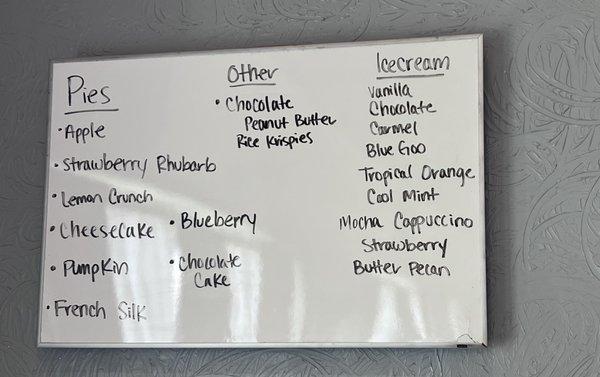 Pies
• Apple
• Strawberry Rhubarb
• Lemon Crunch
• Cheesecake
• Pumpkin
• French Silk
• Blueberry
• Chocolate
Cake
Other
• Chocolate
Peanut Butter
Rice Krispies
Icecream
Vanilla
Chocolate
Carmel
Blue Goo
Tropical Orange
Cool Mint
Mocha Cappuccino
Strawberry
Butter Pecan